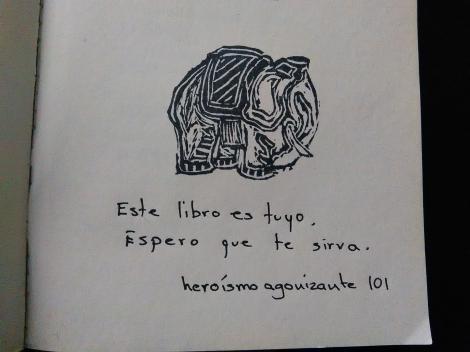 Este libro es tuyo.
Espero que te sirva.
heroísmo agonizante 101